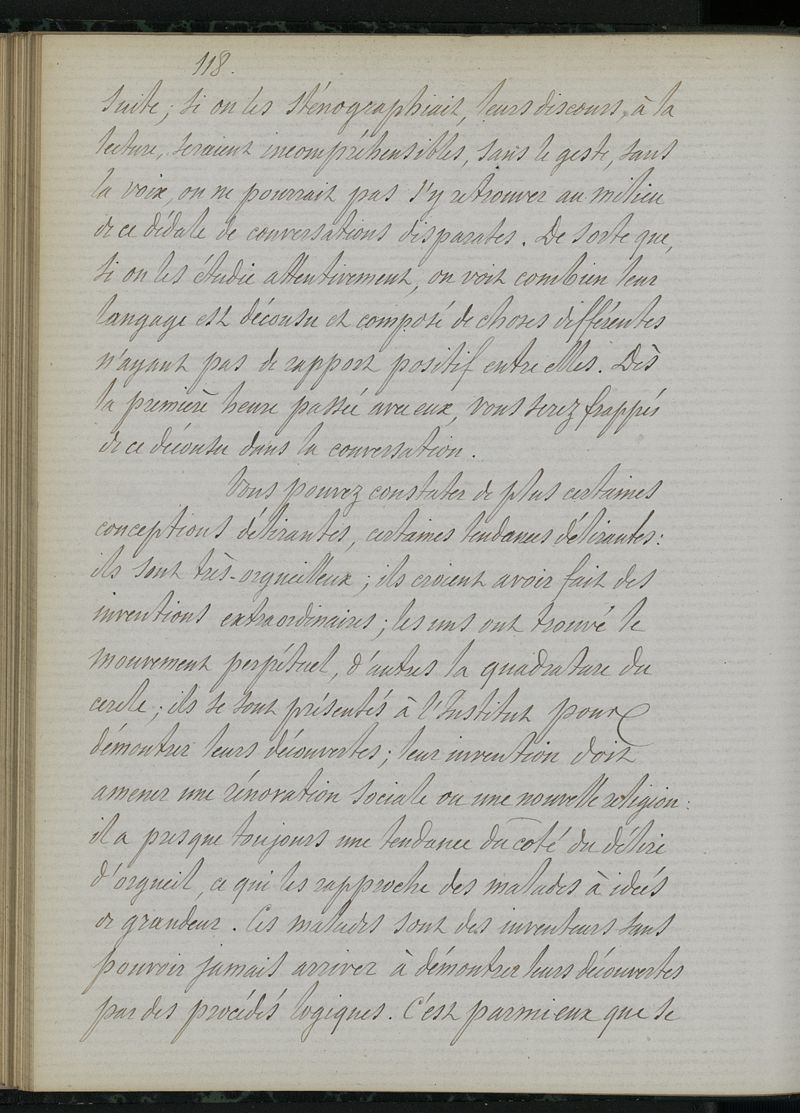 118.
suite; si on les sténographiait, leurs discours, à la
lecture, seraient incompréhensibles, sans le geste, sans
la voix, on ne pourrait pas s'y retrouver au milieu
de ce dédale de conversations disparates. De sorte que,
si on les étudie attentivement, on voit combien leur
langage est décousu et composé de choses différentes
n'ayant pas de rapport positif entre elles. Dès
la première heure passée avec eux, vous serez frappés
de ce décousu dans la conversation.
Vous pouvez constater de plus certaines
conceptions délirantes, certaines tendances délirantes:
ils sont très-orgueilleux; ils croient avoir fait des
inventions extraordinaires; les uns ont trouvé le
mouvement perpétuel, d'autres la quadrature du
cercle; ils se sont présentés à l'Institut pour
démontrer leurs découvertes; leur invention doit
amener une rénovation sociale ou une nouvelle religion:
il a presque toujours une tendance du coté du délire
d'orgueil, ce qui les rapproche des malades à ideés
de grandeur. Ces malades sont des inventeurs sans
pouvoir jamais arriver à démontrer leurs découvertes
par des procédés logiques. C'est parmi eux que se